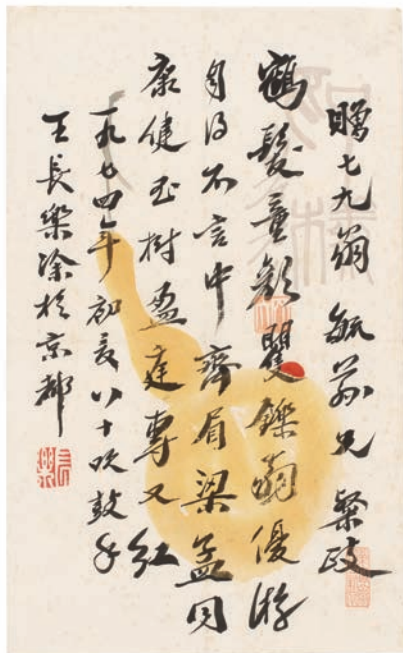 贈七九翁 毓荪兄 粲政
鶴髮童顏矍鑠翁優游
自得不言中齊眉梁孟同
康健玉樹盈庭專又紅
一九七四年初夏八十吹鼓手
王長樂涂於京都